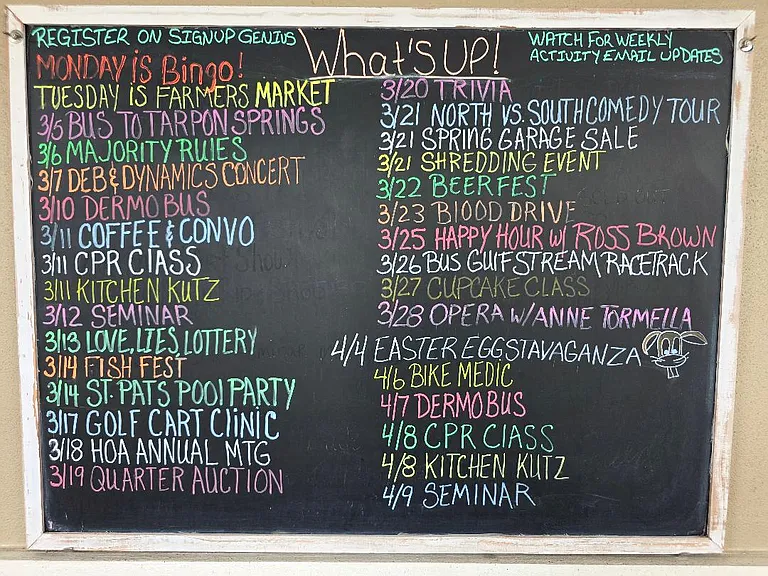 REGISTER ON SIGNUP GENIUS
What's UP!
WATCH FOR WEEKLY
ACTIVITY EMAIL UPDATES
MONDAY iS Bingo!
TUESDAY iS FARMERS MARKET
3/5 BUS TO TARPON SPRINGS
3/6 MAJORITY RULES
3/7 DEB & DYNAMICS CONCERT
3/10 DERMO BUS
3/11 COFFEE & CONVO
3/11 CPR CLASS
3/11 KITCHEN KUTZ
3/12 SEMINAR
3/13 LOVE, LIES, LOTTERY
3/14 FISH FEST
3/14 ST. PATS POOL PARTY
3/17 GOLF CART CLiNiC
3/18 HOA ANNUAL MTG
3/19 QUARTER AUCTION
3/20 TRIVIA
3/21 NORTH VS. SOUTH COMEDY TOUR
3/21 SPRING GARAGE SALE
3/21 SHREDDING EVENT
3/22 BEERFEST
3/23 BLOOD DRIVE
3/25 HAPPY HOUR W/ ROSS BROWN
3/26 BUS GULFSTREAM RACETRACK
3/27 CUPCAKE CLASS
3/28 OPERA W/ANNE TORMELLA
4/4 EASTER EGGSTAVAGANZA
4/6 BIKE MEDIC
4/7 DERMO BUS
4/8 CPR CLASS
4/8 KITCHEN KUTZ
4/9 SEMINAR